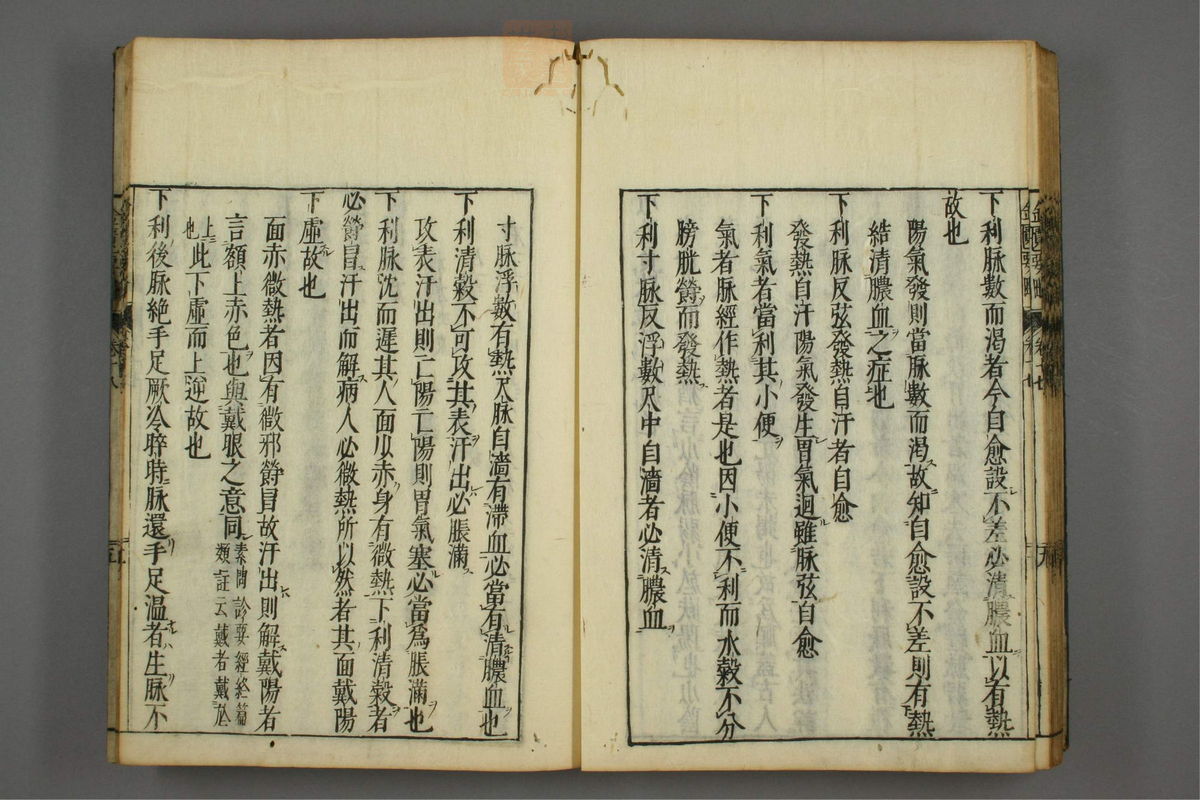 下利脉數而渴者今自愈設不差必清膿血以有熱
故也
陽氣發則當脉數而渴故知自愈設不差則有熱
結清膿血之症也
下利脉反弦發熱自汗者自愈
發熱自汗陽氣發生胃氣迴雖脉弦自愈
下利氣者當利其小便
氣者脉經作熱者是也因小便不利而水穀不分
膀胱欝而發熱
下利寸脉反浮數尺中自濇者必清膿血
寸脉浮數有熱尺脉自濇有滯血必當有清膿血也
下利清穀不可攻其表汗出必脹滿
攻表汗出則亡陽亡陽則胃氣塞必當爲脹滿也
下利脉沈而遲其人面以赤身有微熱下利清穀者
必欝冒汗出而解病人必微熱所以然者其面戴陽
下虛故也
面赤微熱者因有微邪欝冒故汗出則解戴陽者
言額上赤色也與戴眼之意同素問診要經終篇
類註云戴者戴於
上也此下虛而上逆故也
下利後脉絶手足厥冷晬時脉還手足温者生脉不